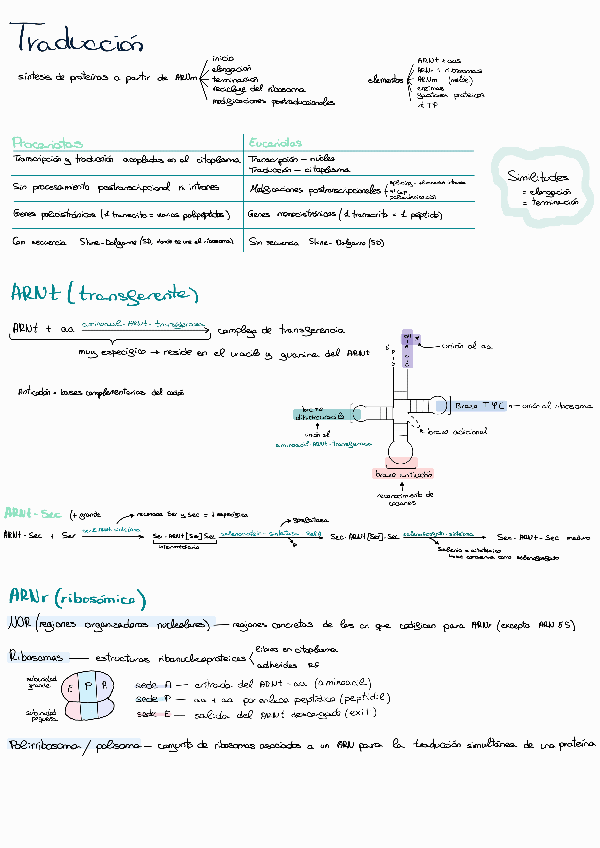 Traducción
síntesis de proteínas a partir de ARNm
inicio
elongación
terminación
reciclaje del ribosoma
modificaciones postraduccionales
elementos
ARNt + aas
ARNr + ribosomas
ARNm (molde)
enzimas
factores proteicos
ATP
Procariotas
Eucariotas
Transcripción y traducción acopladas en el citoplasma
Transcripción — núcleo
Traducción — citoplasma
Sin procesamiento postranscripcional ni intrones
Modificaciones postranscripcionales
Genes policistrónicos (1 transcrito = varios polipéptidos)
Genes monocistrónicos (1 transcrito = 1 péptido)
Con secuencia Shine-Dalgarno (SD, donde se une el ribosoma)
Sin secuencia Shine-Dalgarno (SD)
Similitudes
= elongación
= terminación
ARNt (transferente)
ARNt + aa aminoacil-ARNt-transferasa complejo de transferencia
muy específico → reside en el uracilo y guanina del ARNt
Anticodón = bases complementarias del codón
unión al aa
brazo dihidrouridina
unión al
aminoacil-ARNt-transferasa
Brazo TΨC — unión al ribosoma
brazo adicional
brazo anticodón
reconocimiento de
codones
ARNt-Sec (+ grande
reconoce Ser y Sec = + específica
ARNt-Sec + Ser
Ser-ARNt[Ser]Sec
intermediario
Sec-ARNt[Ser]-Sec
Sec-ARNt-Sec maduro
ARNr (ribosómico)
NOR (regiones organizadoras nucleolares) — regiones concretas de los cr. que codifican para ARNr (excepto ARN 5S)
Ribosomas — estructuras ribonucleoproteicas
libres en citoplasma
adheridos RE
subunidad
grande
E P A
subunidad
pequeña
sede A — entrada del ARNt-aa (aminoacil)
sede P — aa + aa por enlace peptídico (peptidil)
sede E — salida del ARNt descargado (exit)
Polirribosoma / polisoma — conjunto de ribosomas asociados a un ARN para la traducción simultánea de una proteína